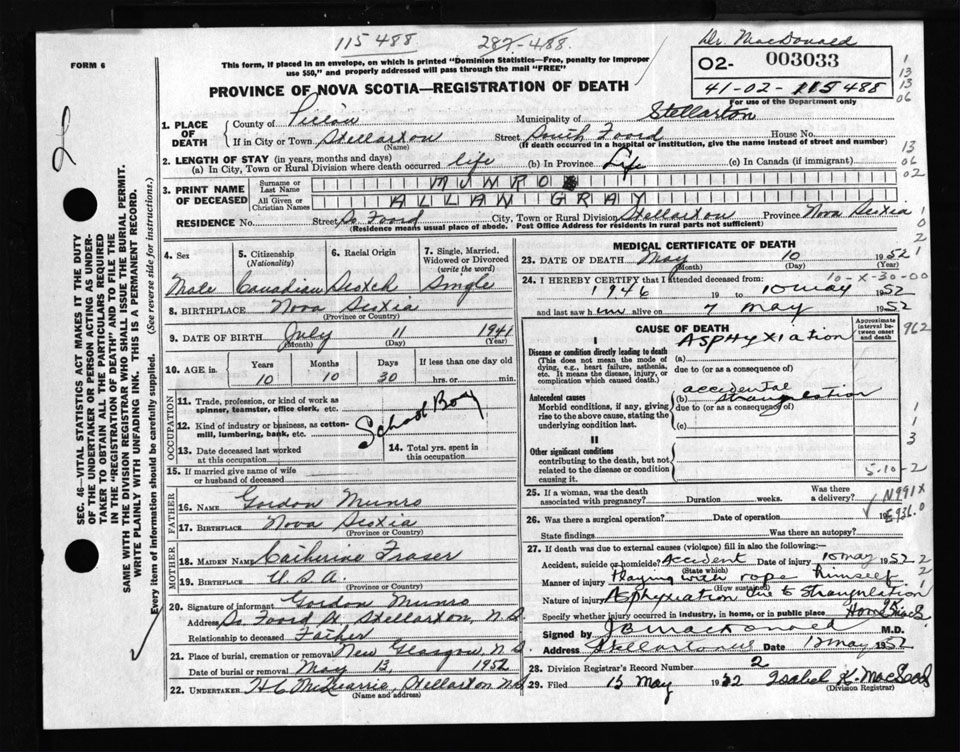 115488 287-488. Dr. MacDonald
FORM 6
This form, if placed in an envelope, on which is printed "Dominion Statistics—Free, penalty for improper
use $50," and properly addressed will pass through the mail "FREE"
02- 003033
41-02-115488
For use of the Department only
PROVINCE OF NOVA SCOTIA—REGISTRATION OF DEATH
1. PLACE OF DEATH County of Pictou Municipality of Stellarton
If in City or Town Stellarton Street South Foord House No.
(Name) (If death occurred in a hospital or institution, give the name instead of street and number)
2. LENGTH OF STAY (in years, months and days)
(a) In City, Town or Rural Division where death occurred life (b) In Province Life (c) In Canada (if immigrant)
3. PRINT NAME OF DECEASED Surname or Last Name MUNRO
All Given or Christian Names ALLAN GRAY
RESIDENCE No. Street So. Foord City, Town or Rural Division Stellarton Province Nova Scotia
(Residence means usual place of abode. Post Office Address for residents in rural parts not sufficient)
4. Sex 5. Citizenship (Nationality) 6. Racial Origin 7. Single, Married, Widowed or Divorced (write the word)
Male Canadian Scotch Single
8. BIRTHPLACE Nova Scotia
(Province or Country)
9. DATE OF BIRTH July 11 1941
(Month) (Day) (Year)
10. AGE in Years Months Days If less than one day old
10 10 30 hrs. or min.
OCCUPATION
11. Trade, profession, or kind of work as spinner, teamster, office clerk, etc.
School Boy
12. Kind of industry or business, as cotton-mill, lumbering, bank, etc.
13. Date deceased last worked at this occupation
14. Total yrs. spent in this occupation
15. If married give name of wife or husband of deceased
FATHER
16. NAME Gordon Munro
17. BIRTHPLACE Nova Scotia
(Province or Country)
MOTHER
18. MAIDEN NAME Catherine Fraser
19. BIRTHPLACE U.S.A.
(Province or Country)
20. Signature of informant Gordon Munro
Address So. Foord St. Stellarton, N.S.
Relationship to deceased Father
21. Place of burial, cremation or removal New Glasgow, N.S.
Date of burial or removal May 13, 1952
22. UNDERTAKER H C McQuarrie, Stellarton N.S.
(Name and address)
MEDICAL CERTIFICATE OF DEATH
23. DATE OF DEATH May 10 1952
(Month) (Day) (Year)
24. I HEREBY CERTIFY that I attended deceased from: 10-X-30-00
1946 19 to 10 May 1952
and last saw him alive on 7 May 1952
CAUSE OF DEATH Approximate interval between onset and death
I
Disease or condition directly leading to death (a) Asphyxiation
(This does not mean the mode of dying, e.g., heart failure, asthenia, etc. It means the disease, injury, or complication which caused death.)
due to (or as a consequence of)
Antecedent causes (b) accidental strangulation
Morbid conditions, if any, giving rise to the above cause, stating the underlying condition last.
due to (or as a consequence of)
(c)
II
Other significant conditions
contributing to the death, but not related to the disease or condition causing it.
5-10-2
25. If a woman, was the death associated with pregnancy? Duration weeks. Was there a delivery?
N991X
26. Was there a surgical operation? Date of operation 19
E936.0
State findings Was there an autopsy?
27. If death was due to external causes (violence) fill in also the following:—
Accident, suicide or homicide? Accident Date of injury 10 May 1952
(State which)
Manner of injury Playing with rope himself
(How sustained)
Nature of injury Asphyxiation due to strangulation
Specify whether injury occurred in industry, in home, or in public place
Signed by JB MacDonald M.D.
Address Stellarton NS Date 12 May 1952
28. Division Registrar's Record Number 2
29. Filed 15 May 1952 Isabel K. MacLeod
(Division Registrar)
SEC. 46—VITAL STATISTICS ACT MAKES IT THE DUTY
OF THE UNDERTAKER OR PERSON ACTING AS UNDER-
TAKER TO OBTAIN ALL THE PARTICULARS REQUIRED
IN THE "REGISTRATION OF DEATH" AND TO FILE THE
SAME WITH THE DIVISION REGISTRAR WHO SHALL ISSUE THE BURIAL PERMIT.
WRITE PLAINLY WITH UNFADING INK. THIS IS A PERMANENT RECORD.
Every item of information should be carefully supplied. (See reverse side for instructions.)
1
13
13
06
13
06
02
1
0
2
2
962
1
1
3
2
2
1